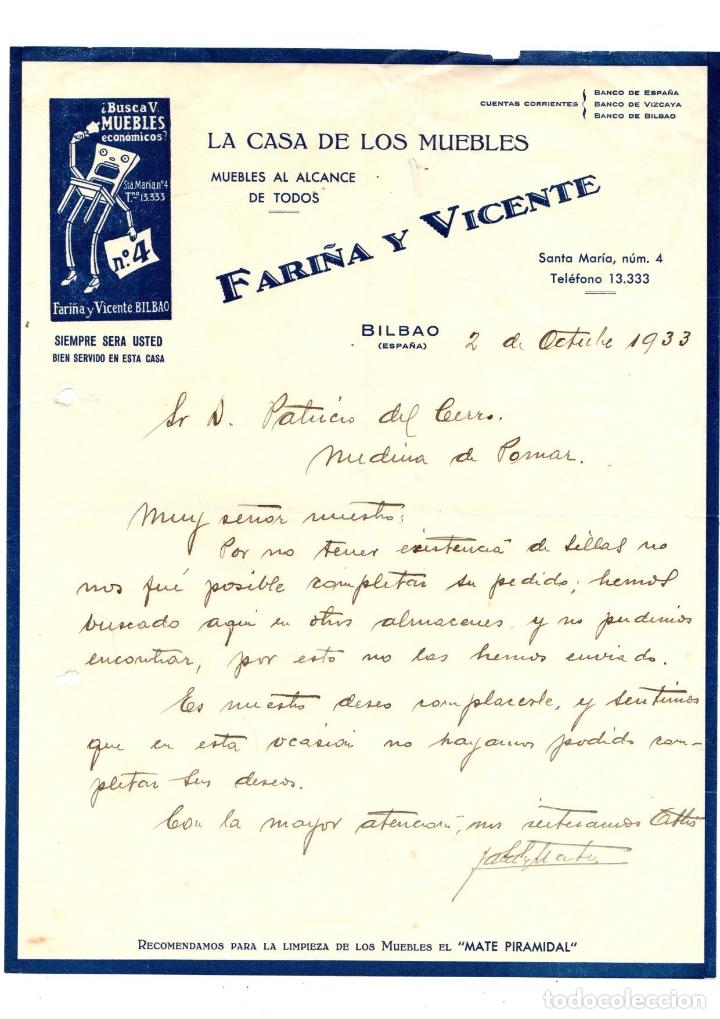 ¿Busca V.
MUEBLES
económicos?
Sta. María nº 4
T.no 13.333
nº 4
Fariña y Vicente BILBAO
SIEMPRE SERA USTED
BIEN SERVIDO EN ESTA CASA
CUENTAS CORRIENTES
BANCO DE ESPAÑA
BANCO DE VIZCAYA
BANCO DE BILBAO
LA CASA DE LOS MUEBLES
MUEBLES AL ALCANCE
DE TODOS
FARIÑA Y VICENTE
Santa María, núm. 4
Teléfono 13.333
BILBAO
(ESPAÑA)
2 de Octubre 1933
Sr D. Patricio del Cerro.
Medina de Pomar.
Muy señor nuestro:
Por no tener existencia de sillas no
nos fué posible completar su pedido; hemos
buscado aqui en otros almacenes y no pudimos
encontrar, por esto no las hemos enviado.
Es nuestro deseo complacerle, y sentimos
que en esta ocasión no hayamos podido com-
pletar sus deseos.
Con la mayor atención, nos reiteramos Attos
RECOMENDAMOS PARA LA LIMPIEZA DE LOS MUEBLES EL "MATE PIRAMIDAL"
todocoleccion